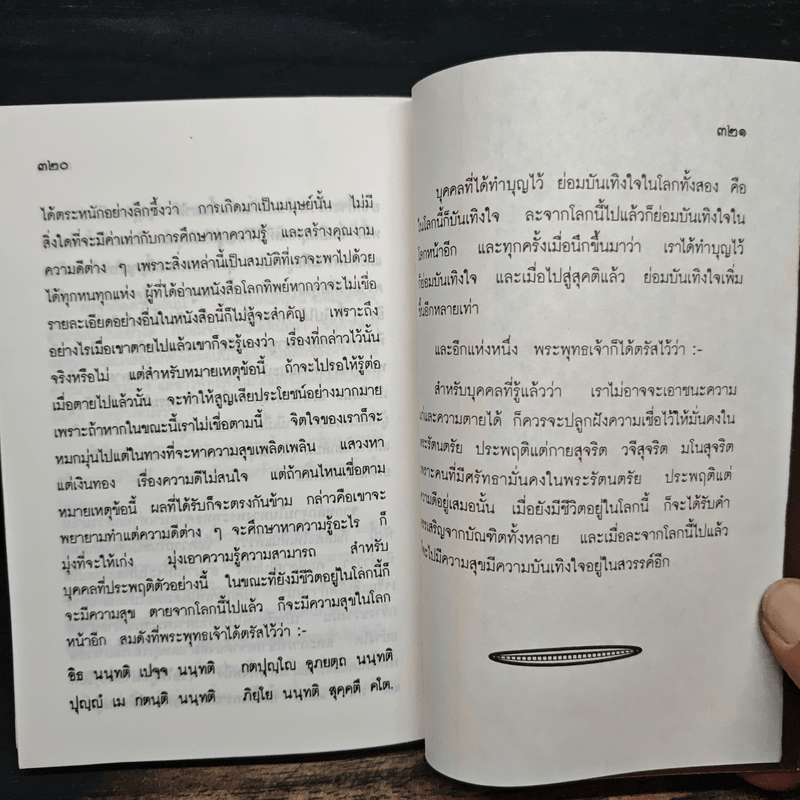 ๓๒๐
ได้ตระหนักอย่างลึกซึ้งว่า การเกิดมาเป็นมนุษย์นั้น ไม่มี
สิ่งใดที่จะมีค่าเท่ากับการศึกษาหาความรู้ และสร้างคุณงาม
ความดีต่าง ๆ เพราะสิ่งเหล่านี้เป็นสมบัติที่เราจะพาไปด้วย
ได้ทุกหนทุกแห่ง ผู้ที่ได้อ่านหนังสือโลกทิพย์หากว่าจะไม่เชื่อ
รายละเอียดอย่างอื่นในหนังสือนี้ก็ไม่สู้จะสำคัญ เพราะถึง
อย่างไรเมื่อเขาตายไปแล้วเขาก็จะรู้เองว่า เรื่องที่กล่าวไว้นั้น
จริงหรือไม่ แต่สำหรับหมายเหตุข้อนี้ ถ้าจะไปรอให้รู้ต่อ
เมื่อตายไปแล้วนั้น จะทำให้สูญเสียประโยชน์อย่างมากมาย
เพราะถ้าหากในขณะนี้เราไม่เชื่อตามนี้ จิตใจของเราก็จะ
หมกมุ่นไปแต่ในทางที่จะหาความสุขเพลิดเพลิน แสวงหา
แต่เงินทอง เรื่องความดีไม่สนใจ แต่ถ้าคนไหนเชื่อตาม
หมายเหตุข้อนี้ ผลที่ได้รับก็จะตรงกันข้าม กล่าวคือเขาจะ
พยายามทำแต่ความดีต่าง ๆ จะศึกษาหาความรู้อะไร ก็
มุ่งที่จะให้เก่ง มุ่งเอาความรู้ความสามารถ สำหรับ
บุคคลที่ประพฤติตัวอย่างนี้ ในขณะที่ยังมีชีวิตอยู่ในโลกนี้ก็
จะมีความสุข ตายจากโลกนี้ไปแล้ว ก็จะมีความสุขในโลก
หน้าอีก สมดังที่พระพุทธเจ้าได้ตรัสไว้ว่า :-
อิธ นนฺทติ เปจฺจ นนฺทติ กตปุญฺโญ อุภยตฺถ นนฺทติ
ปุญฺญํ เม กตนฺติ นนฺทติ ภิยฺโย นนฺทติ สุคฺคตึ คโต.
๓๒๑
บุคคลที่ได้ทำบุญไว้ ย่อมบันเทิงใจในโลกทั้งสอง คือ
ในโลกนี้ก็บันเทิงใจ ละจากโลกนี้ไปแล้วก็ย่อมบันเทิงใจใน
โลกหน้าอีก และทุกครั้งเมื่อนึกขึ้นมาว่า เราได้ทำบุญไว้
ก็ย่อมบันเทิงใจ และเมื่อไปสู่สุคติแล้ว ย่อมบันเทิงใจเพิ่ม
ขึ้นอีกหลายเท่า
และอีกแห่งหนึ่ง พระพุทธเจ้าก็ได้ตรัสไว้ว่า :-
สำหรับบุคคลที่รู้แล้วว่า เราไม่อาจจะเอาชนะความ
แก่และความตายได้ ก็ควรจะปลูกฝังความเชื่อไว้ให้มั่นคงใน
พระรัตนตรัย ประพฤติแต่กายสุจริต วจีสุจริต มโนสุจริต
เพราะคนที่มีศรัทธามั่นคงในพระรัตนตรัย ประพฤติแต่
ความดีอยู่เสมอนั้น เมื่อยังมีชีวิตอยู่ในโลกนี้ ก็จะได้รับคำ
สรรเสริญจากบัณฑิตทั้งหลาย และเมื่อละจากโลกนี้ไปแล้ว
จะไปมีความสุขมีความบันเทิงใจอยู่ในสวรรค์อีก